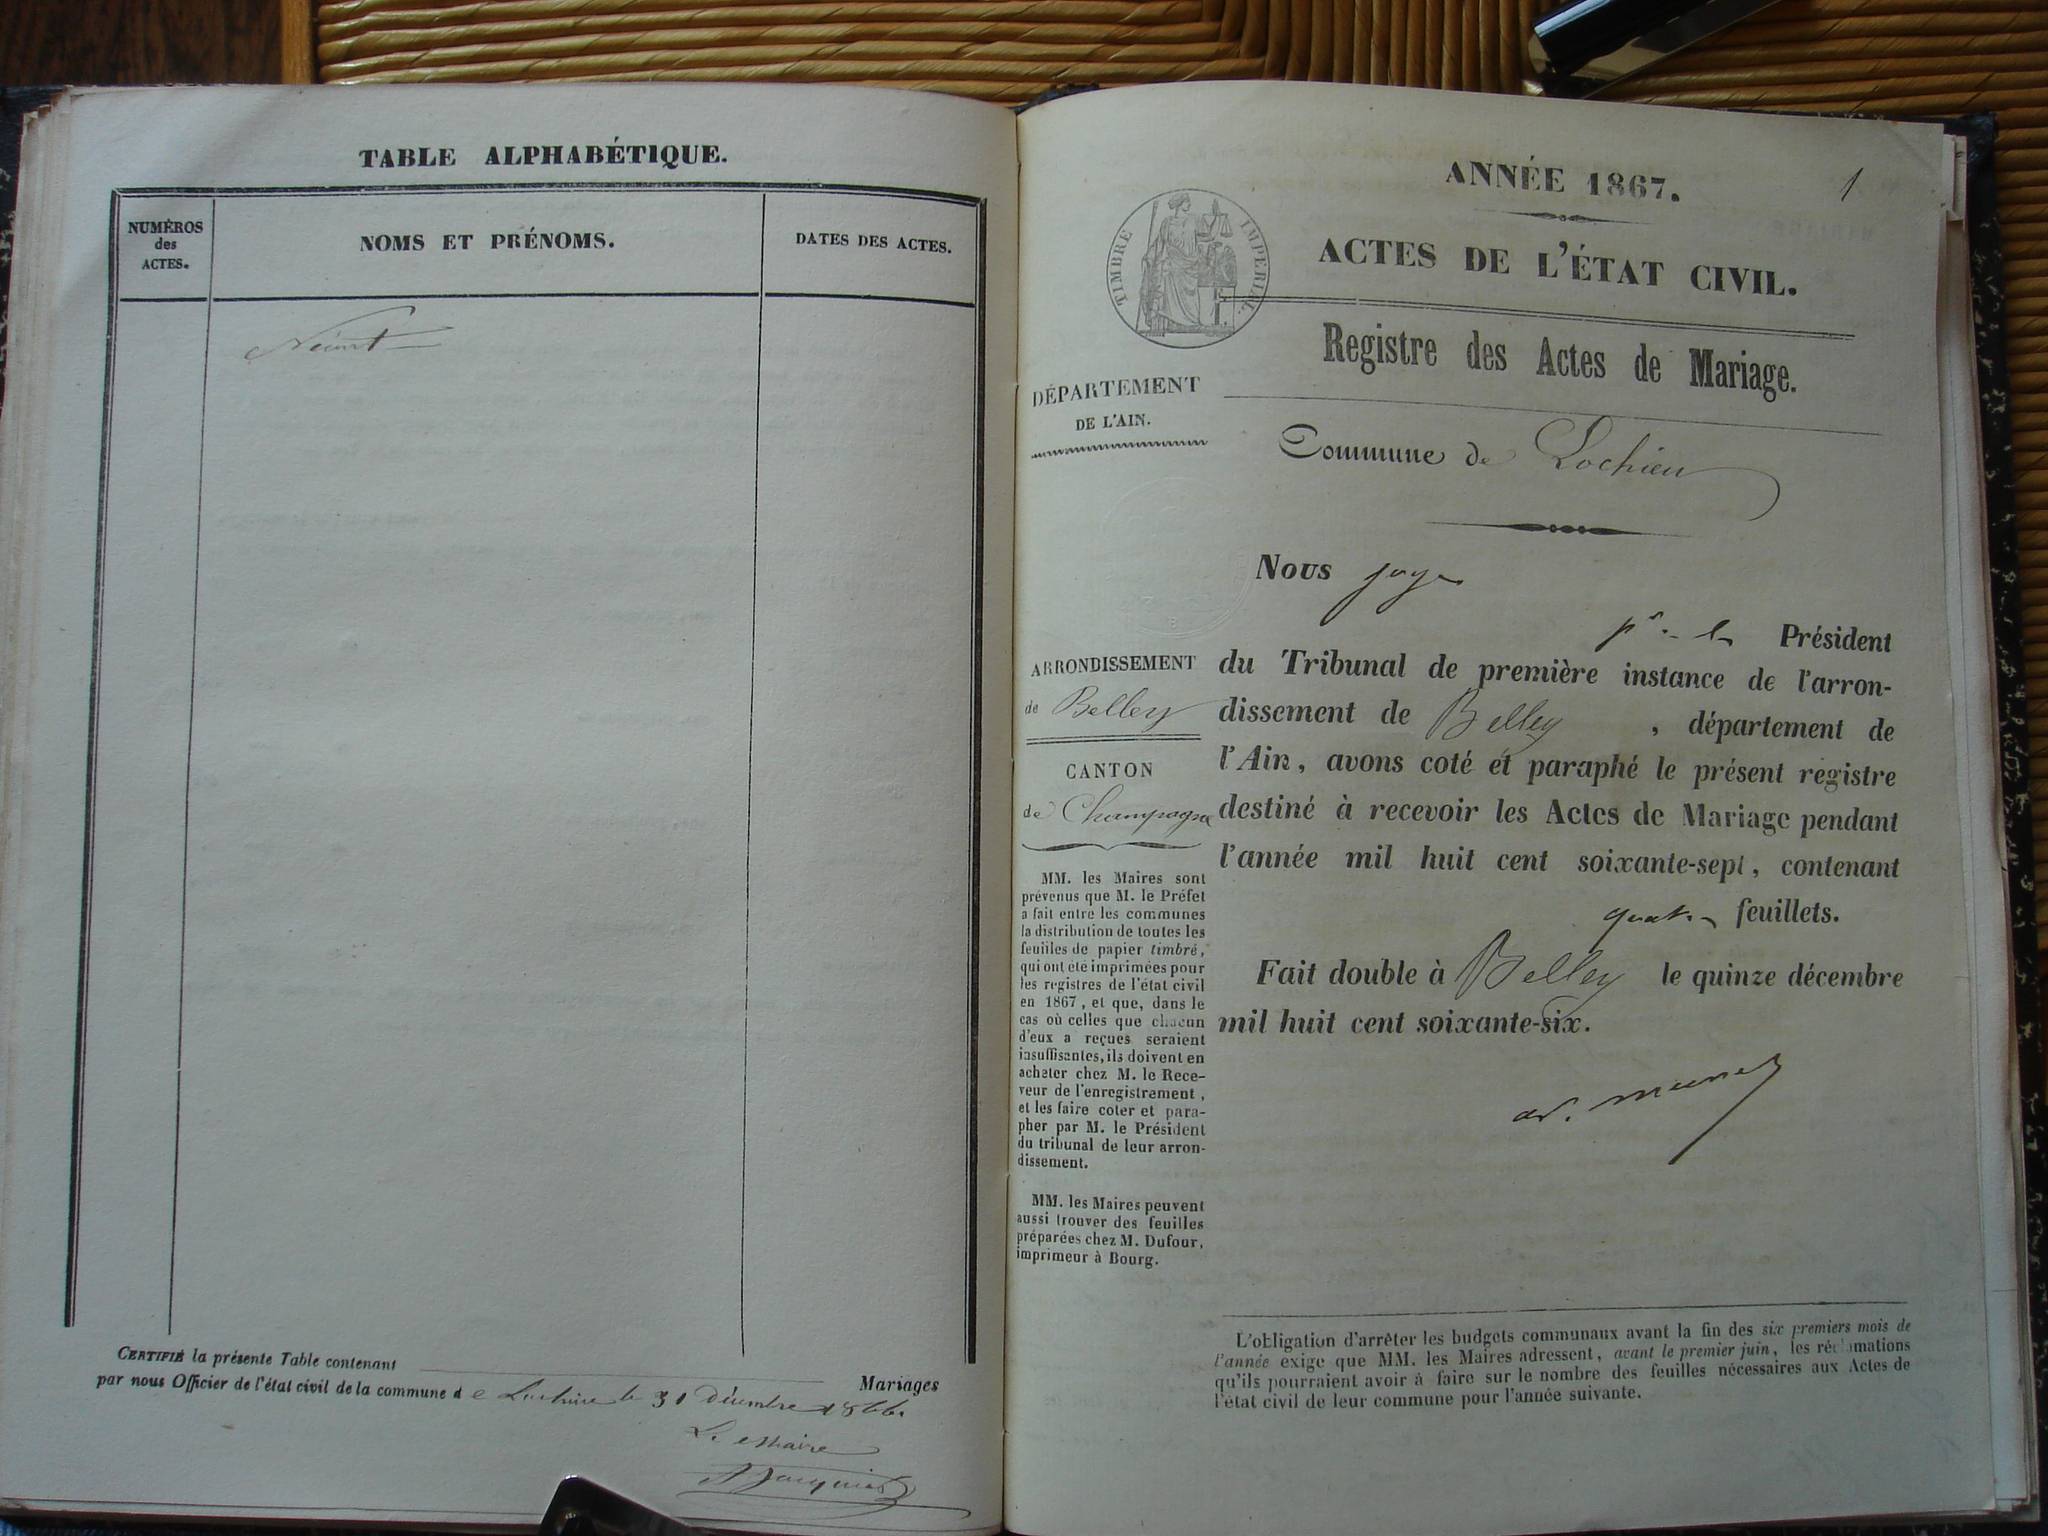 TABLE ALPHABÉTIQUE.
NUMÉROS
des
ACTES.
NOMS ET PRÉNOMS.
DATES DES ACTES.
Néant
CERTIFIÉ la présente Table contenant Mariages
par nous Officier de l'état civil de la commune de Lochieu le 31 Décembre 1866.
Le Maire
Jacquier
ANNÉE 1867.
1
TIMBRE IMPÉRIAL.
ACTES DE L'ÉTAT CIVIL.
Registre des Actes de Mariage.
DÉPARTEMENT
DE L'AIN.
Commune de Lochieu
ARRONDISSEMENT
de Belley
CANTON
de Champagne
MM. les Maires sont
prévenus que M. le Préfet
a fait entre les communes
la distribution de toutes les
feuilles de papier timbré,
qui ont été imprimées pour
les registres de l'état civil
en 1867, et que, dans le
cas où celles que chacun
d'eux a reçues seraient
insuffisantes, ils doivent en
acheter chez M. le Rece-
veur de l'enregistrement,
et les faire coter et para-
pher par M. le Président
du tribunal de leur arron-
dissement.
MM. les Maires peuvent
aussi trouver des feuilles
préparées chez M. Dufour,
imprimeur à Bourg.
Nous juge
pr. le Président
du Tribunal de première instance de l'arron-
dissement de Belley, département de
l'Ain, avons coté et paraphé le présent registre
destiné à recevoir les Actes de Mariage pendant
l'année mil huit cent soixante-sept, contenant
quatre feuillets.
Fait double à Belley le quinze décembre
mil huit cent soixante-six.
L'obligation d'arrêter les budgets communaux avant la fin des six premiers mois de
l'année exige que MM. les Maires adressent, avant le premier juin, les réclamations
qu'ils pourraient avoir à faire sur le nombre des feuilles nécessaires aux Actes de
l'état civil de leur commune pour l'année suivante.